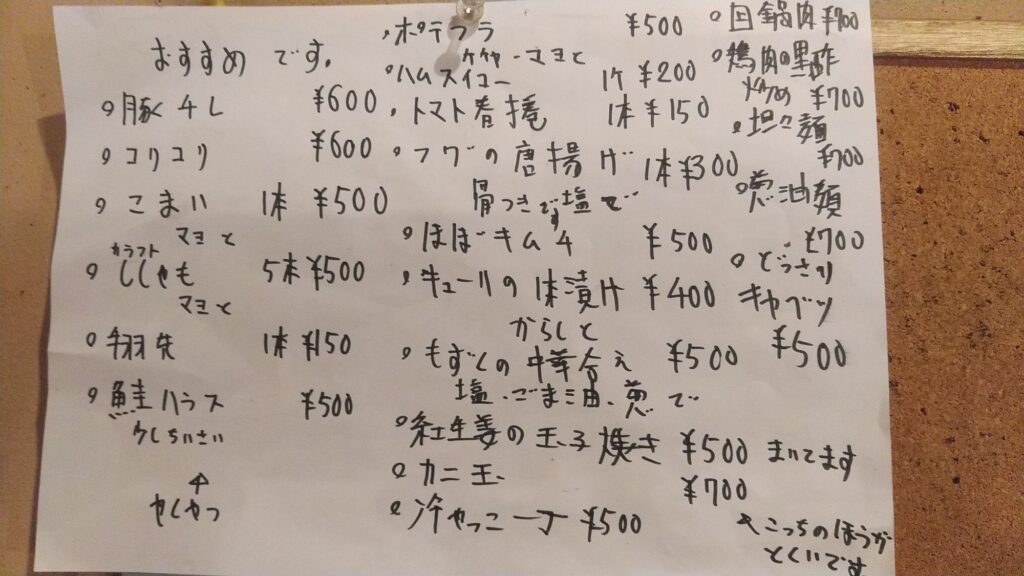 おすすめ です。
豚チレ ¥600
コリコリ ¥600
こまい 1本 ¥500
マヨと
カラフト
ししゃも 5本 ¥500
マヨと
手羽先 1本 ¥150
鮭ハラス ¥500
少しちいさい
↑
やくやつ
ポテフラ ¥500
ケチャ・マヨと
ハムスイコー 1ケ ¥200
トマト春捲 1本 ¥150
フグの唐揚げ 1本 ¥300
骨つきです 塩で
ほぼキムチ ¥500
キュールの1本漬け ¥400
からしと
もずくの中華合え ¥500
塩、ごま油、葱で
紅生姜の玉子焼き ¥500 まいてます
カニ玉 ¥700
冷やっこ一丁 ¥500
回鍋肉 ¥700
鶏肉の黒酢
炒め ¥700
坦々麺
¥700
葱油麺
¥700
どっさり
キャベツ
¥500
↖こっちのほうが
とくいです